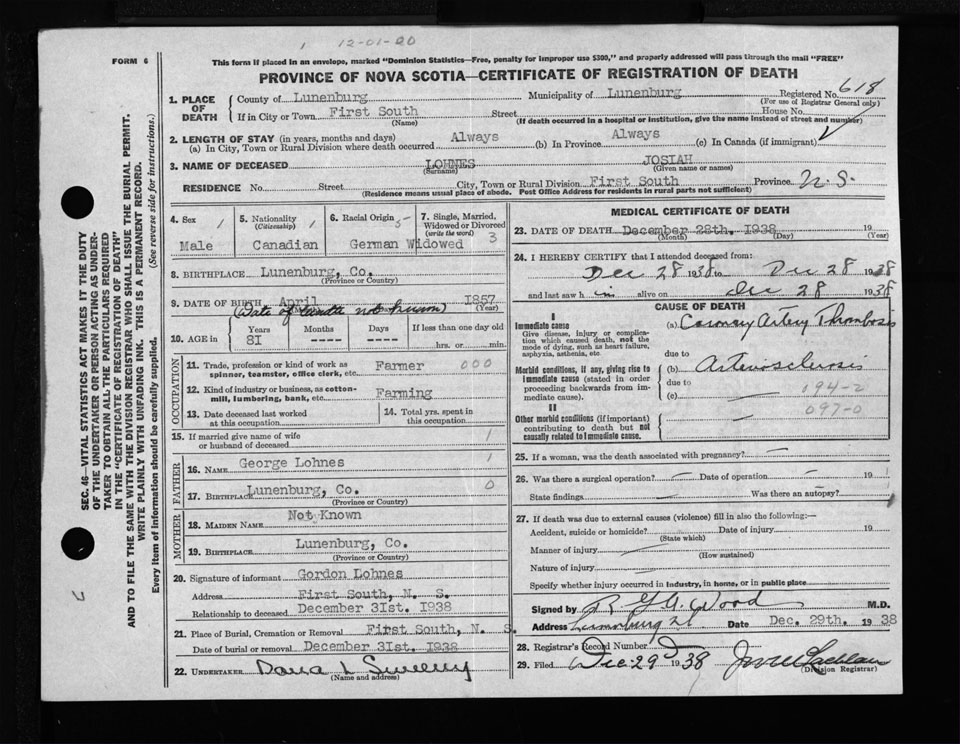 1 12-01-20
FORM 6
This form if placed in an envelope, marked "Dominion Statistics—Free, penalty for improper use $300," and properly addressed will pass through the mail "FREE"
PROVINCE OF NOVA SCOTIA—CERTIFICATE OF REGISTRATION OF DEATH
Registered No. 618
(For use of Registrar General only)
1. PLACE OF DEATH
County of Lunenburg Municipality of Lunenburg
If in City or Town First South Street House No.
(Name) (If death occurred in a hospital or institution, give the name instead of street and number)
2. LENGTH OF STAY (in years, months and days)
(a) In City, Town or Rural Division where death occurred Always (b) In Province Always (c) In Canada (if immigrant)
3. NAME OF DECEASED LOHNES JOSIAH
(Surname) (Given name or names)
RESIDENCE No. Street City, Town or Rural Division First South Province N.S.
(Residence means usual place of abode. Post Office Address for residents in rural parts not sufficient)
4. Sex 1
Male
5. Nationality 1
(Citizenship)
Canadian
6. Racial Origin 5
German
7. Single, Married, Widowed or Divorced
(write the word) 3
Widowed
8. BIRTHPLACE Lunenburg, Co.
(Province or Country)
9. DATE OF BIRTH April 1857
(Year)
(Date of birth not known)
10. AGE in Years Months Days If less than one day old
81 ---- ---- hrs. or min.
OCCUPATION
11. Trade, profession or kind of work as spinner, teamster, office clerk, etc. Farmer 000
12. Kind of industry or business, as cotton-mill, lumbering, bank, etc. Farming
13. Date deceased last worked at this occupation
14. Total yrs. spent in this occupation
15. If married give name of wife or husband of deceased 1
FATHER
16. NAME George Lohnes 1
17. BIRTHPLACE Lunenburg, Co. 0
(Province or Country)
MOTHER
18. MAIDEN NAME Not Known
19. BIRTHPLACE Lunenburg, Co.
(Province or Country)
20. Signature of informant Gordon Lohnes
Address First South, N. S.
Relationship to deceased December 31st. 1938
21. Place of Burial, Cremation or Removal First South, N. S.
Date of burial or removal December 31st. 1938
22. UNDERTAKER Dana L Sweeny
(Name and address)
MEDICAL CERTIFICATE OF DEATH
23. DATE OF DEATH December 28th. 1938 19
(Month) (Day) (Year)
24. I HEREBY CERTIFY that I attended deceased from:
Dec 28 1938 to Dec 28 1938
and last saw h im alive on Dec 28 1938
CAUSE OF DEATH
I
Immediate cause
Give disease, injury or complication which caused death, not the mode of dying, such as heart failure, asphyxia, asthenia, etc.
(a) Coronary Artery Thrombosis
due to
Morbid conditions, if any, giving rise to immediate cause (stated in order proceeding backwards from immediate cause).
(b) Arteriosclerosis
due to 194-2
(c)
097-0
II
Other morbid conditions (if important) contributing to death but not causally related to immediate cause.
25. If a woman, was the death associated with pregnancy?
26. Was there a surgical operation? Date of operation 19
State findings Was there an autopsy?
27. If death was due to external causes (violence) fill in also the following:—
Accident, suicide or homicide? Date of injury 19
(State which)
Manner of injury
(How sustained)
Nature of injury
Specify whether injury occurred in industry, in home, or in public place
Signed by Wood M.D.
Address Lunenburg Date Dec. 29th. 1938
28. Registrar's Record Number
29. Filed Dec 29 1938
(Division Registrar)
SEC. 46—VITAL STATISTICS ACT MAKES IT THE DUTY
OF THE UNDERTAKER OR PERSON ACTING AS UNDER-
TAKER TO OBTAIN ALL THE PARTICULARS REQUIRED
IN THE "CERTIFICATE OF REGISTRATION OF DEATH"
AND TO FILE THE SAME WITH THE DIVISION REGISTRAR WHO SHALL ISSUE THE BURIAL PERMIT.
WRITE PLAINLY WITH UNFADING INK. THIS IS A PERMANENT RECORD.
Every item of information should be carefully supplied. (See reverse side for instructions.)